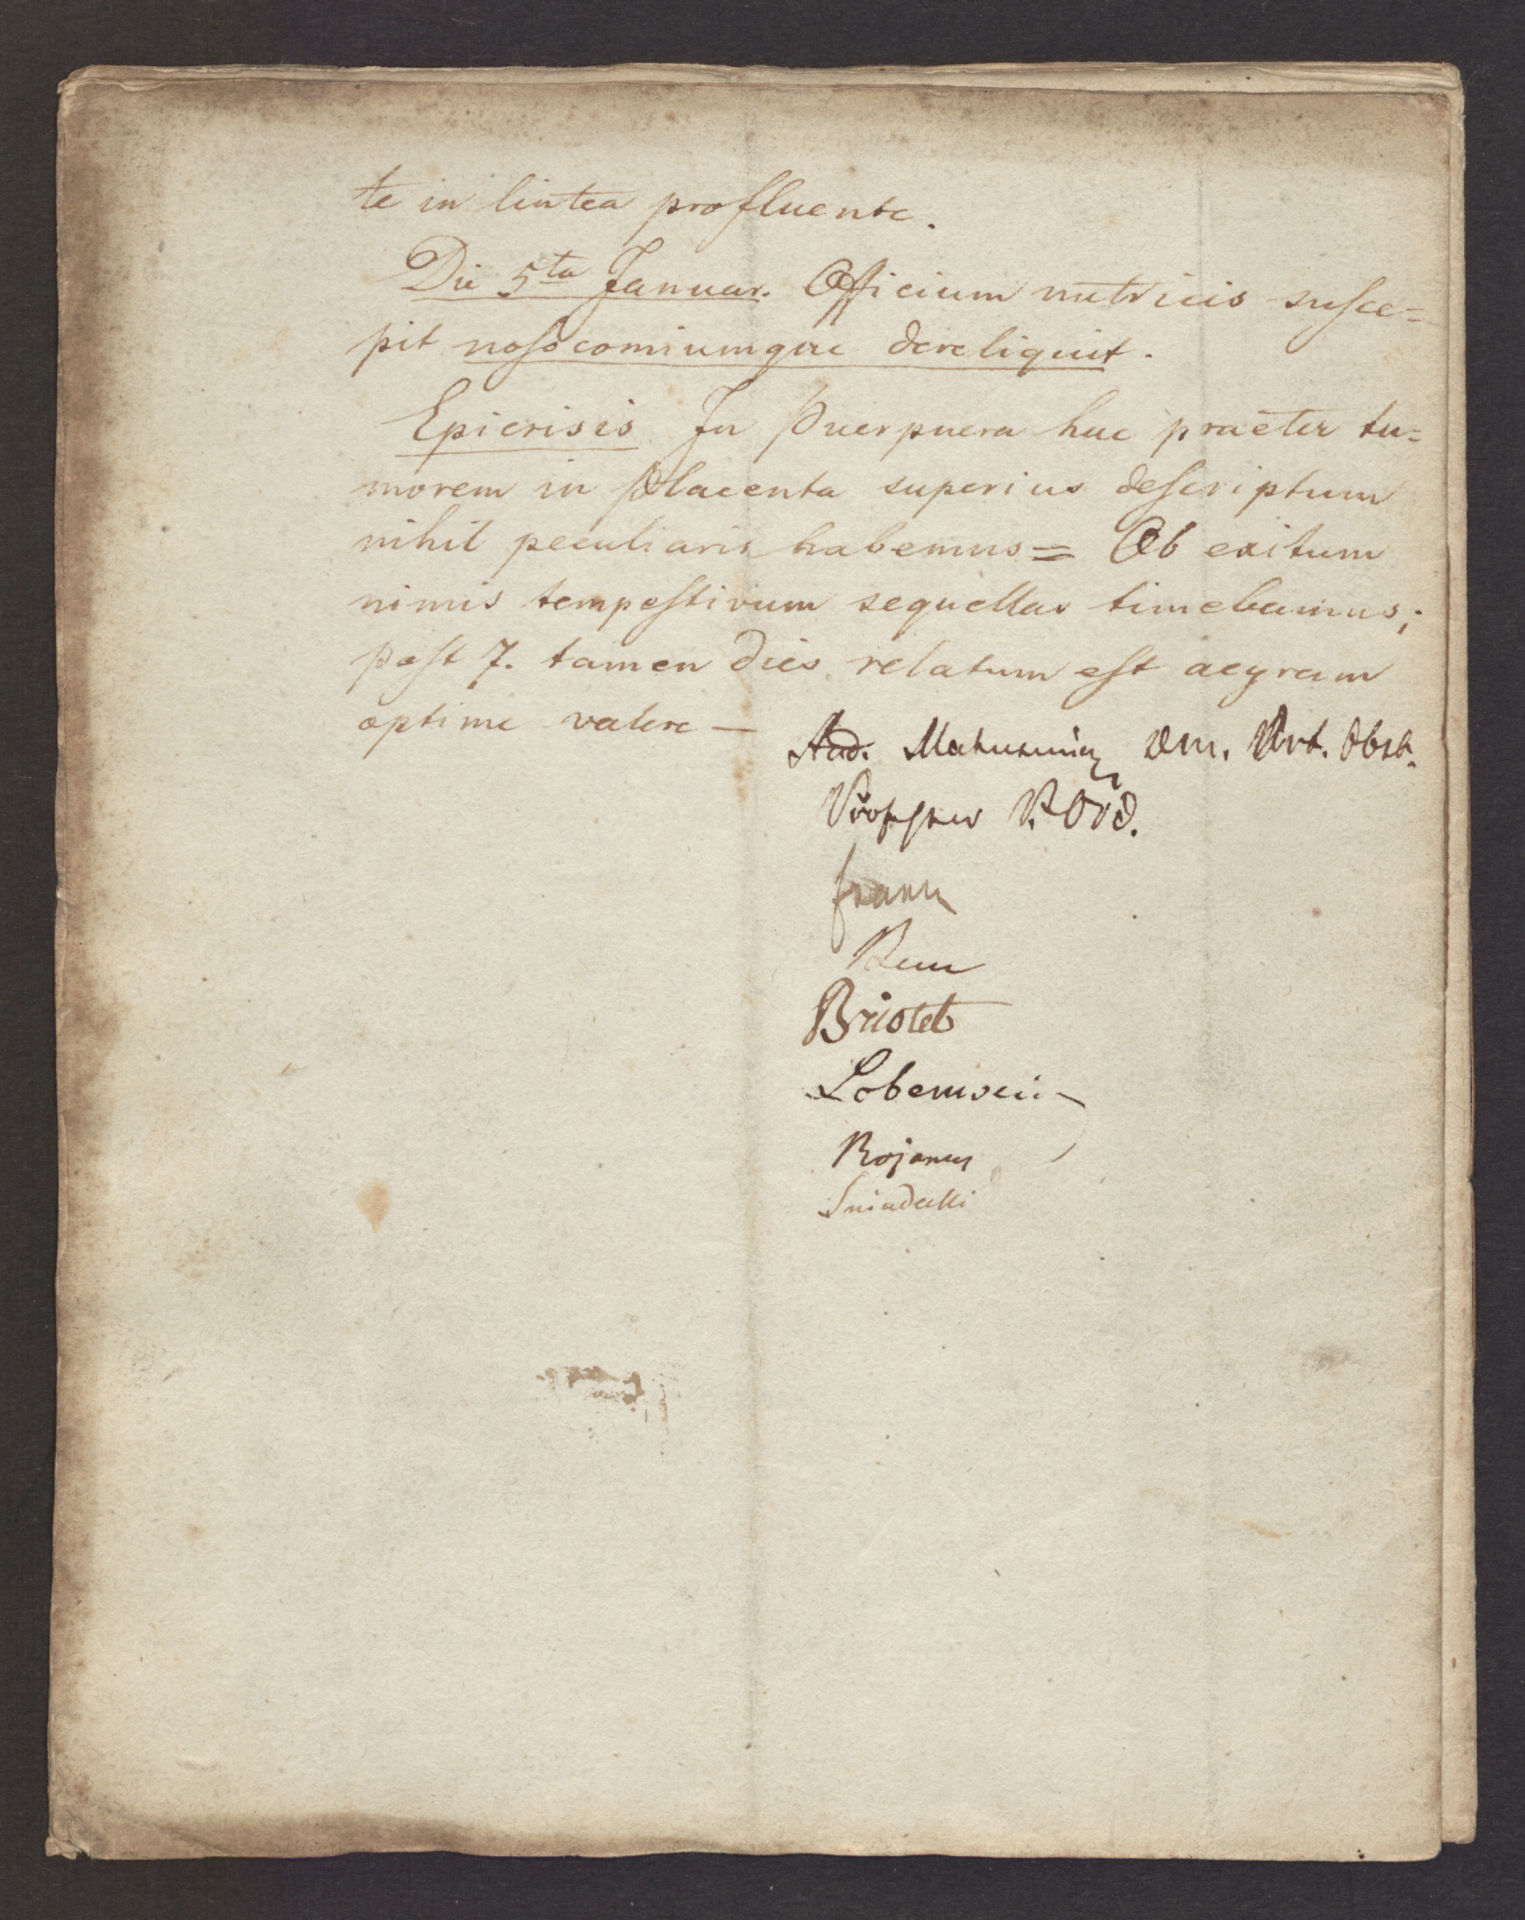 te in lintea profluente.
Die 5ta Januar. Officium nutricis susce=
pit nosocomiumque dereliquit.
Epicrisis In Puerpuera hac praeter tu=
morem in Placenta superius descriptum
nihil peculiaris habemus = Ob exitum
nimis tempestivum sequellas timebamus;
post 7. tamen dies relatum est aegram
optime valere —
And. Matusewicz Art. Obst.
Professor P. Ord.
Frank
Briotet
Lobenwein
Bojanus
Sniadecki